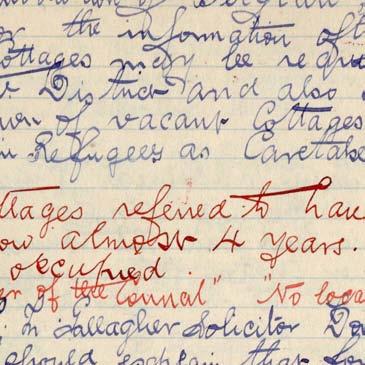 the information of
Cottages may be requ
District and also
of vacant Cottages
Refugees as Caretake
ttages referred to hav
ow almost 4 years.
occupied
er of the Council" "No loca
Gallagher Solicitor Do
should explain that